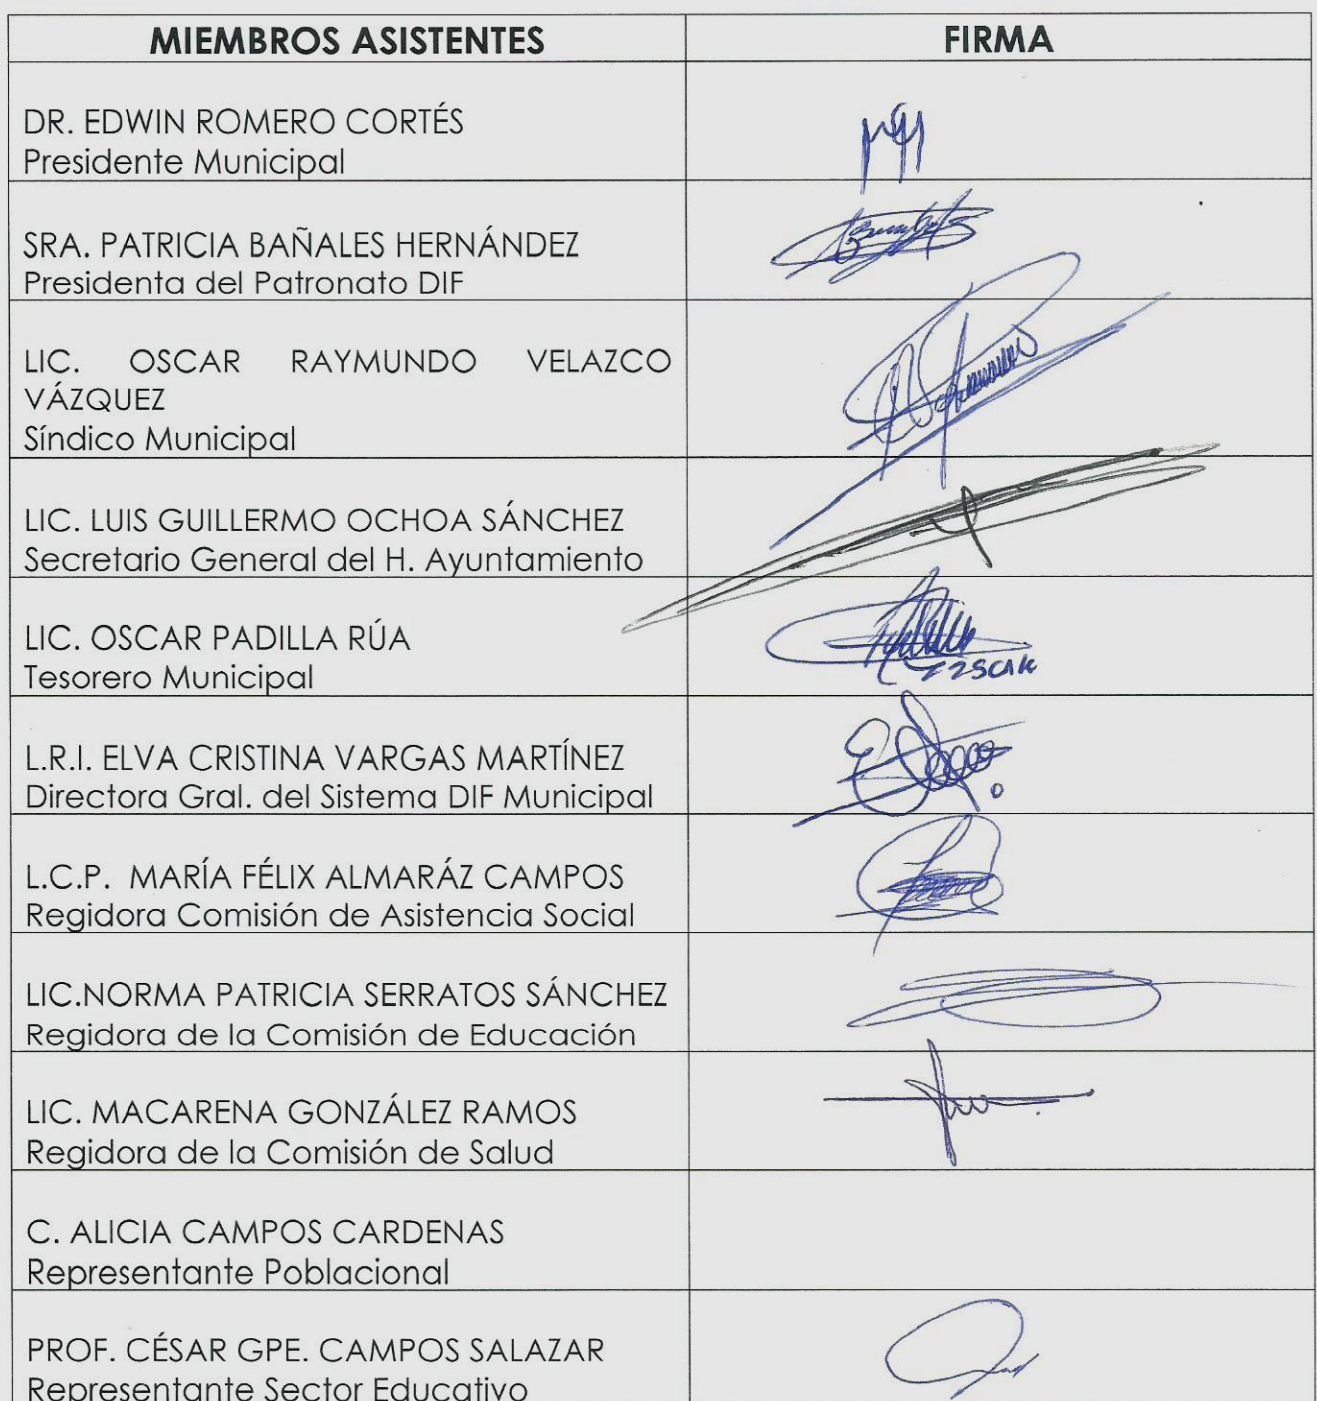 MIEMBROS ASISTENTES
FIRMA
DR. EDWIN ROMERO CORTÉS
Presidente Municipal
SRA. PATRICIA BAÑALES HERNÁNDEZ
Presidenta del Patronato DIF
LIC. OSCAR RAYMUNDO VELAZCO
VÁZQUEZ
Síndico Municipal
LIC. LUIS GUILLERMO OCHOA SÁNCHEZ
Secretario General del H. Ayuntamiento
LIC. OSCAR PADILLA RÚA
Tesorero Municipal
L.R.I. ELVA CRISTINA VARGAS MARTÍNEZ
Directora Gral. del Sistema DIF Municipal
L.C.P. MARÍA FÉLIX ALMARÁZ CAMPOS
Regidora Comisión de Asistencia Social
LIC.NORMA PATRICIA SERRATOS SÁNCHEZ
Regidora de la Comisión de Educación
LIC. MACARENA GONZÁLEZ RAMOS
Regidora de la Comisión de Salud
C. ALICIA CAMPOS CARDENAS
Representante Poblacional
PROF. CÉSAR GPE. CAMPOS SALAZAR
Representante Sector Educativo